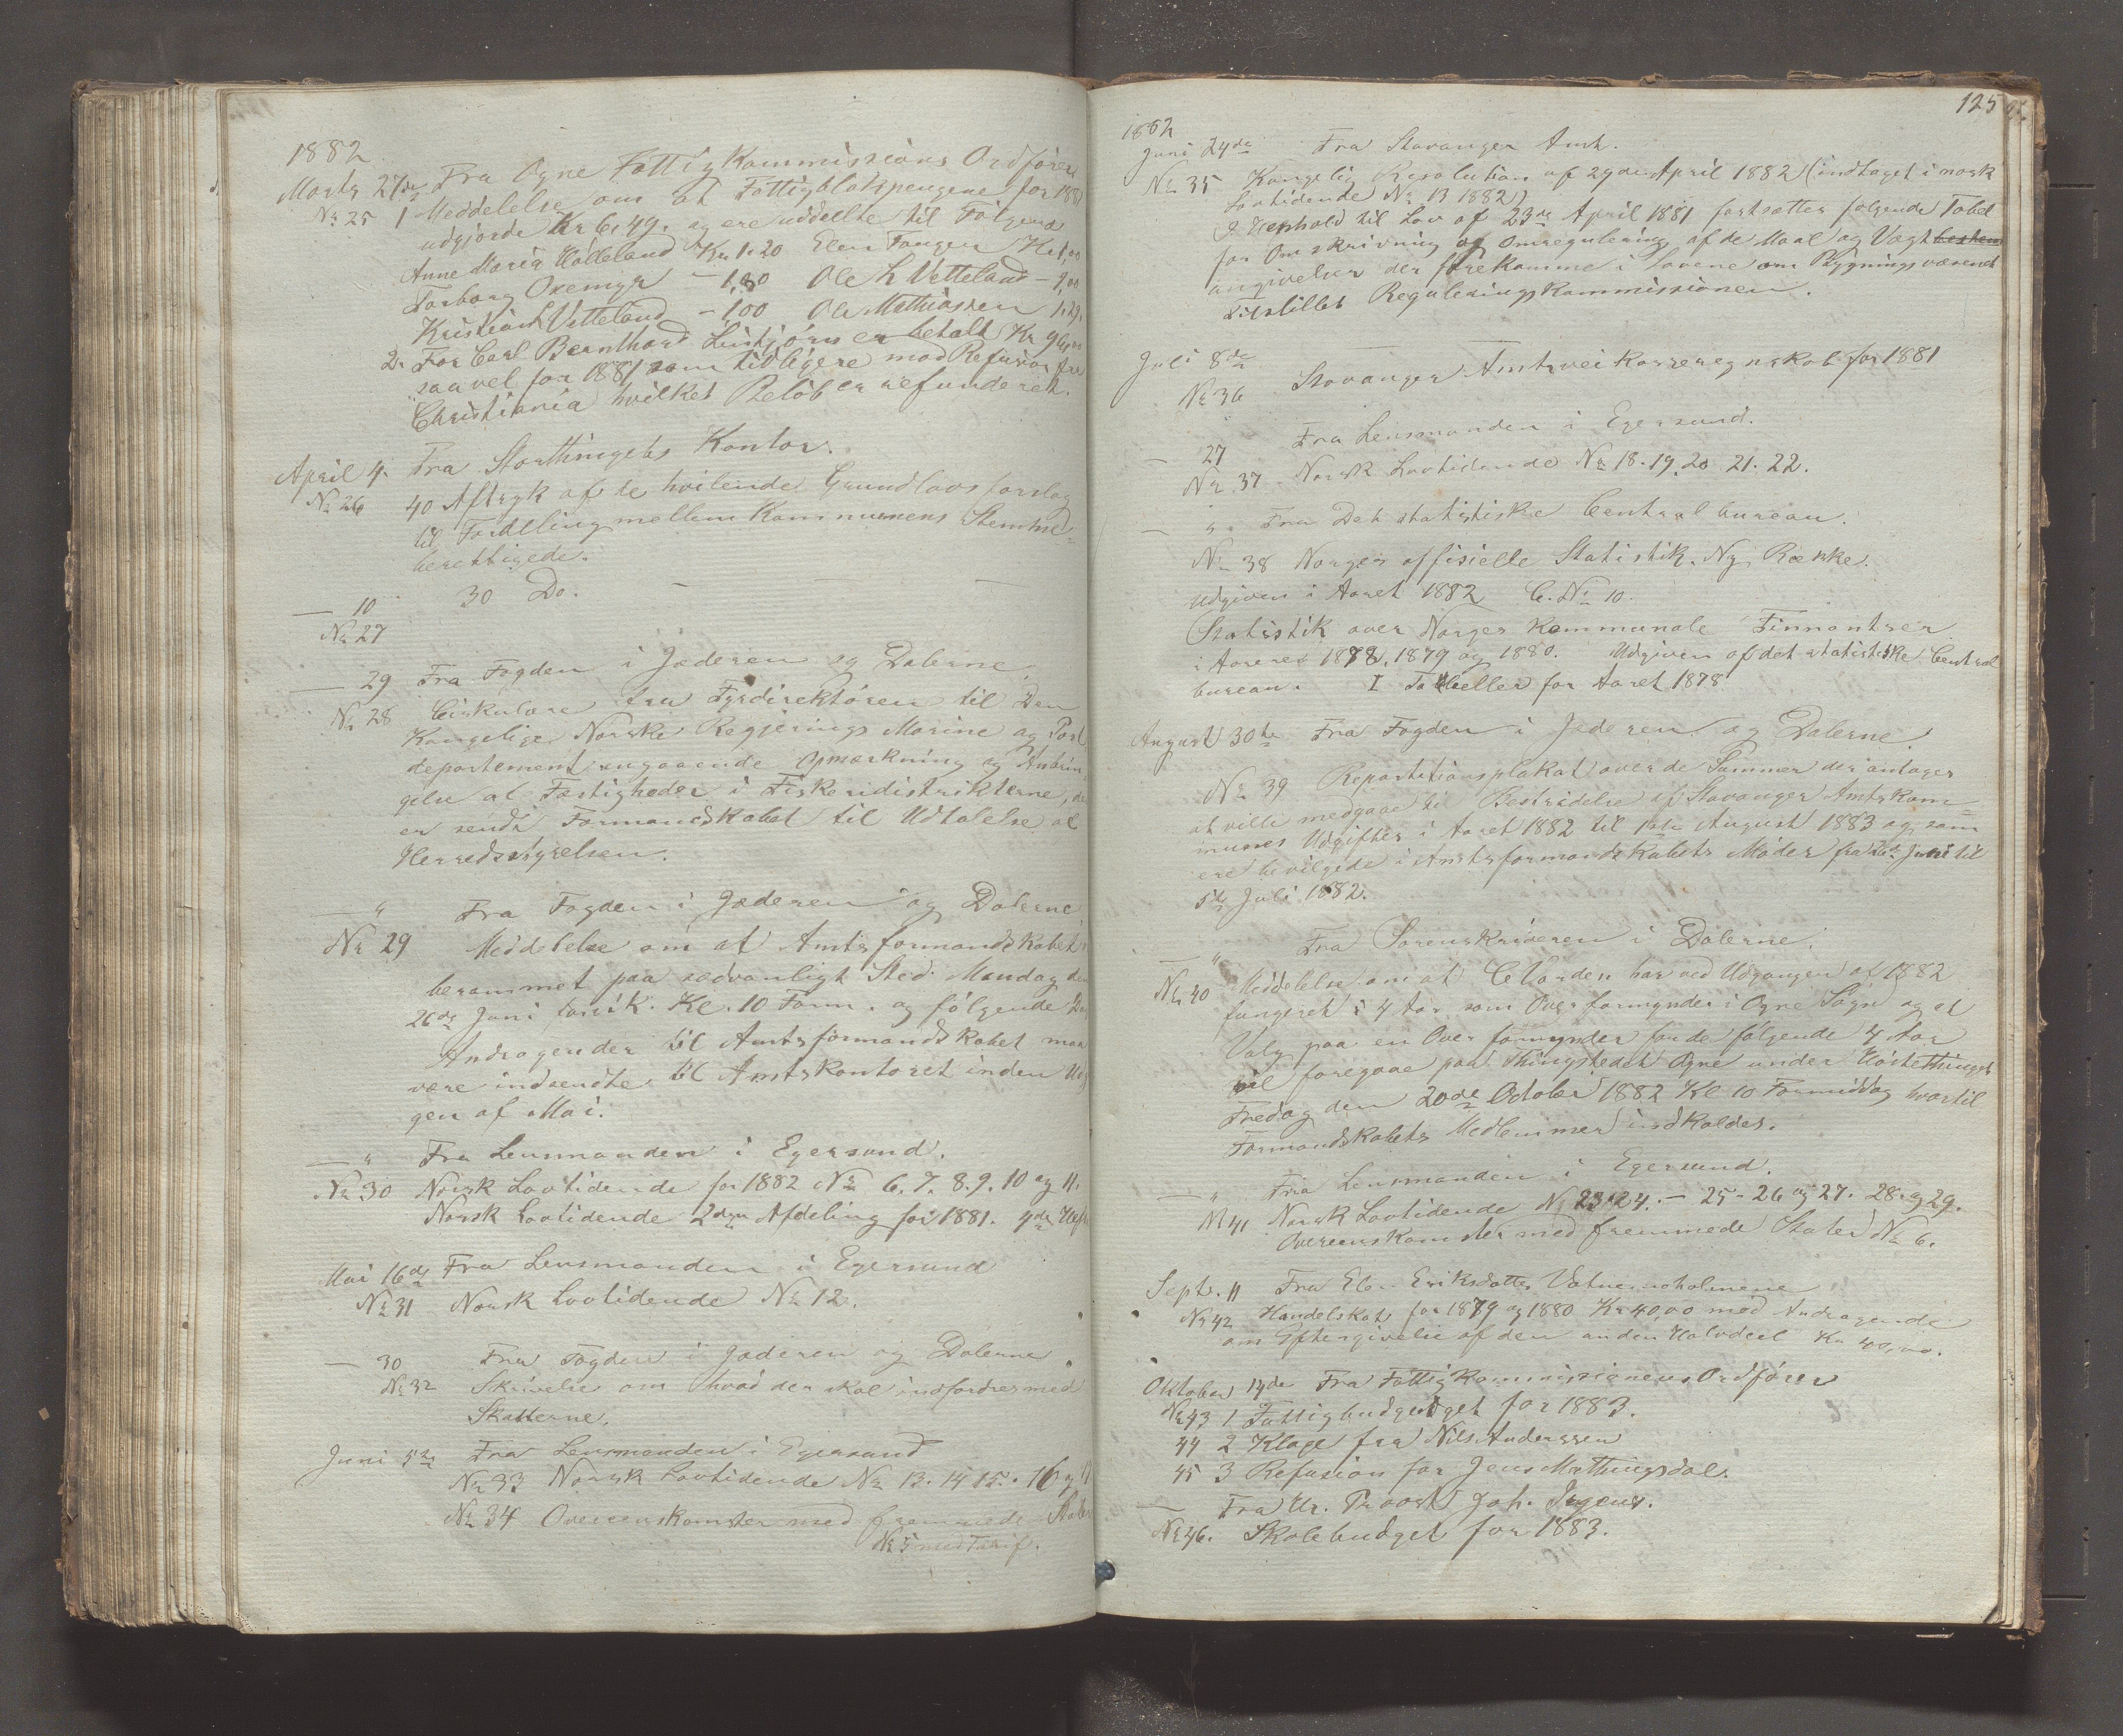 1882
Marts 27de Fra Ogne Fattigkommissions Ordfører
No 25 1 Meddelelse om at Fattigblotspengene for 1881
udgjorde Kr 6,49. og ere uddeelte til Følgende
Anne Maria Hölleland Kr. 1.20 Elen Tangen Kr 1,00
Torborg Oxemyr - 1,80 Ole L Vetteland -
Kristian Vetteland - 1,00 Ole Mathiassen 1.29.
2. For Carl Bernthard er betalt Kr
saavel for 1881 som tidligere mod Refusion fra
Christiania hvilket Beløb er refunderet.
April 4. Fra Storthingets Kontor.
No 26 40 Aftryk af de hvilende Grundlovsforslag
til Fordeling mellem Kommunens Stemme-
berettigede.
— 10 30 Do. — — —
No 27
— 29 Fra Fogden i Jæderen og Dalerne.
No 28 Cirkulære fra Fyrdirektören til Den
Kongelige Norske Regjerings Marine og Post
departement angaaende Opmærkning og Anbrin
gelse af Fæstigheder i Fiskeridistrikterne, der
er sendt Formandskabet til Udtalelse af
Herredsstyrelsen.
— " Fra Fogden i Jæderen og Dalerne
No 29 Meddelelse om at Amtsformandskabet er
berammet paa sædvanligt Sted. Mandag den
26de Juni førstk. Kl. 10 Form. og følgende Dag
Andragender til Amtsformandskabet maa
være indsendte til Amtskontoret inden Udg
gen af Mai.
— " Fra Lensmanden i Egersund.
No 30 Norsk Lovtidende for 1882 No 6. 7. 8. 9. 10 og 11.
Norsk Lovtidende 2den Afdeling for 1881. 4de Hefte
Mai 16de Fra Lensmanden i Egersund
No 31 Norsk Lovtidende No 12.
— 30 Fra Fogden i Jæderen og Dalerne
No 32 Skrivelse om hvad der skal indfordres med
Skatterne.
Juni 5te Fra Lensmanden i Egersund
No 33 Norsk Lovtidende No 13. 14 15. 16 og 17
No 34 Overenskomster med fremmede Stater
No 5 med Tarif.
125
1882
Juni 24de Fra Stavanger Amt.
No 35 Kongelig Resolution af 29den April 1882 (indtaget i norsk
Lovtidende No 13 1882)
I Henhold til Lov af 23de April 1881 fastsættes følgende Tabel
for Omskrivning og Omregulering af de Maal og Vægt bestem
angivelser der forekomme i Lovene om Bygningsvæsenet
Tilstillet Reguleringskommissionen.
Juli 8de
No 36 Stavanger Amtsveikasseregnskab for 1881
— 27 Fra Lensmanden i Egersund.
No 37 Norsk Lovtidende No 18. 19. 20 21. 22.
— " Fra Det statistiske Centralbureau.
No 38 Norges offisielle Statistik. Ny Række.
Udgiven i Aaret 1882 C. No 10.
Statistik over Norges kommunale Finnantser
i Aarene 1878, 1879 og 1880. Udgiven af det statistiske Central
bureau. I Tabeller for Aaret 1878
August 30te Fra Fogden i Jæderen og Dalerne.
No 39 Repartitionsplakat over de Summer der antages
at ville medgaae til Bestridelse af Stavanger Amtskom=
munes Udgifter i Aaret 1882 til 1ste August 1883 og som
ere bevilgede i Amtsformandskabets Møder fra 26de Juni til
5te Juli 1882.
— " Fra Sorenskriveren i Dalerne.
No 40 Meddelelse om at C Varden har ved Udgangen af 1882
fungeret i 4 Aar som Overformynder i Ogne Sogn og at
Valg paa en Overformynder for de følgende 4 Aar
vil foregaae paa Thingstedet Ogne under Høstetthinget
Fredag den 20de October 1882 Kl 10 Formiddag hvortil
Formandskabets Medlemmer indkaldes.
— " Fra Lensmanden i Egersund.
No 41 Norsk Lovtidende No 23 24. — 25 - 26 og 27. 28 og 29.
Overenskomster med fremmede Stater No 6.
Sept. 11 Fra Elen Eriksdatter Vatnemoholmene
No 42 Handelskat for 1879 og 1880 Kr 40,00 med Andragende
om Eftergivelse af den anden Halvdeel Kr 40,00.
Oktober 14de Fra Fattigkommissionens Ordfører
No 43 1 Fattigbudgedget for 1883.
44 2 Klage fra Nils Anderssen
45 3 Refusion for Jens Mathingsdal.
— Fra Hr. Provst Joh.
No 46. Skolebudget for 1883.